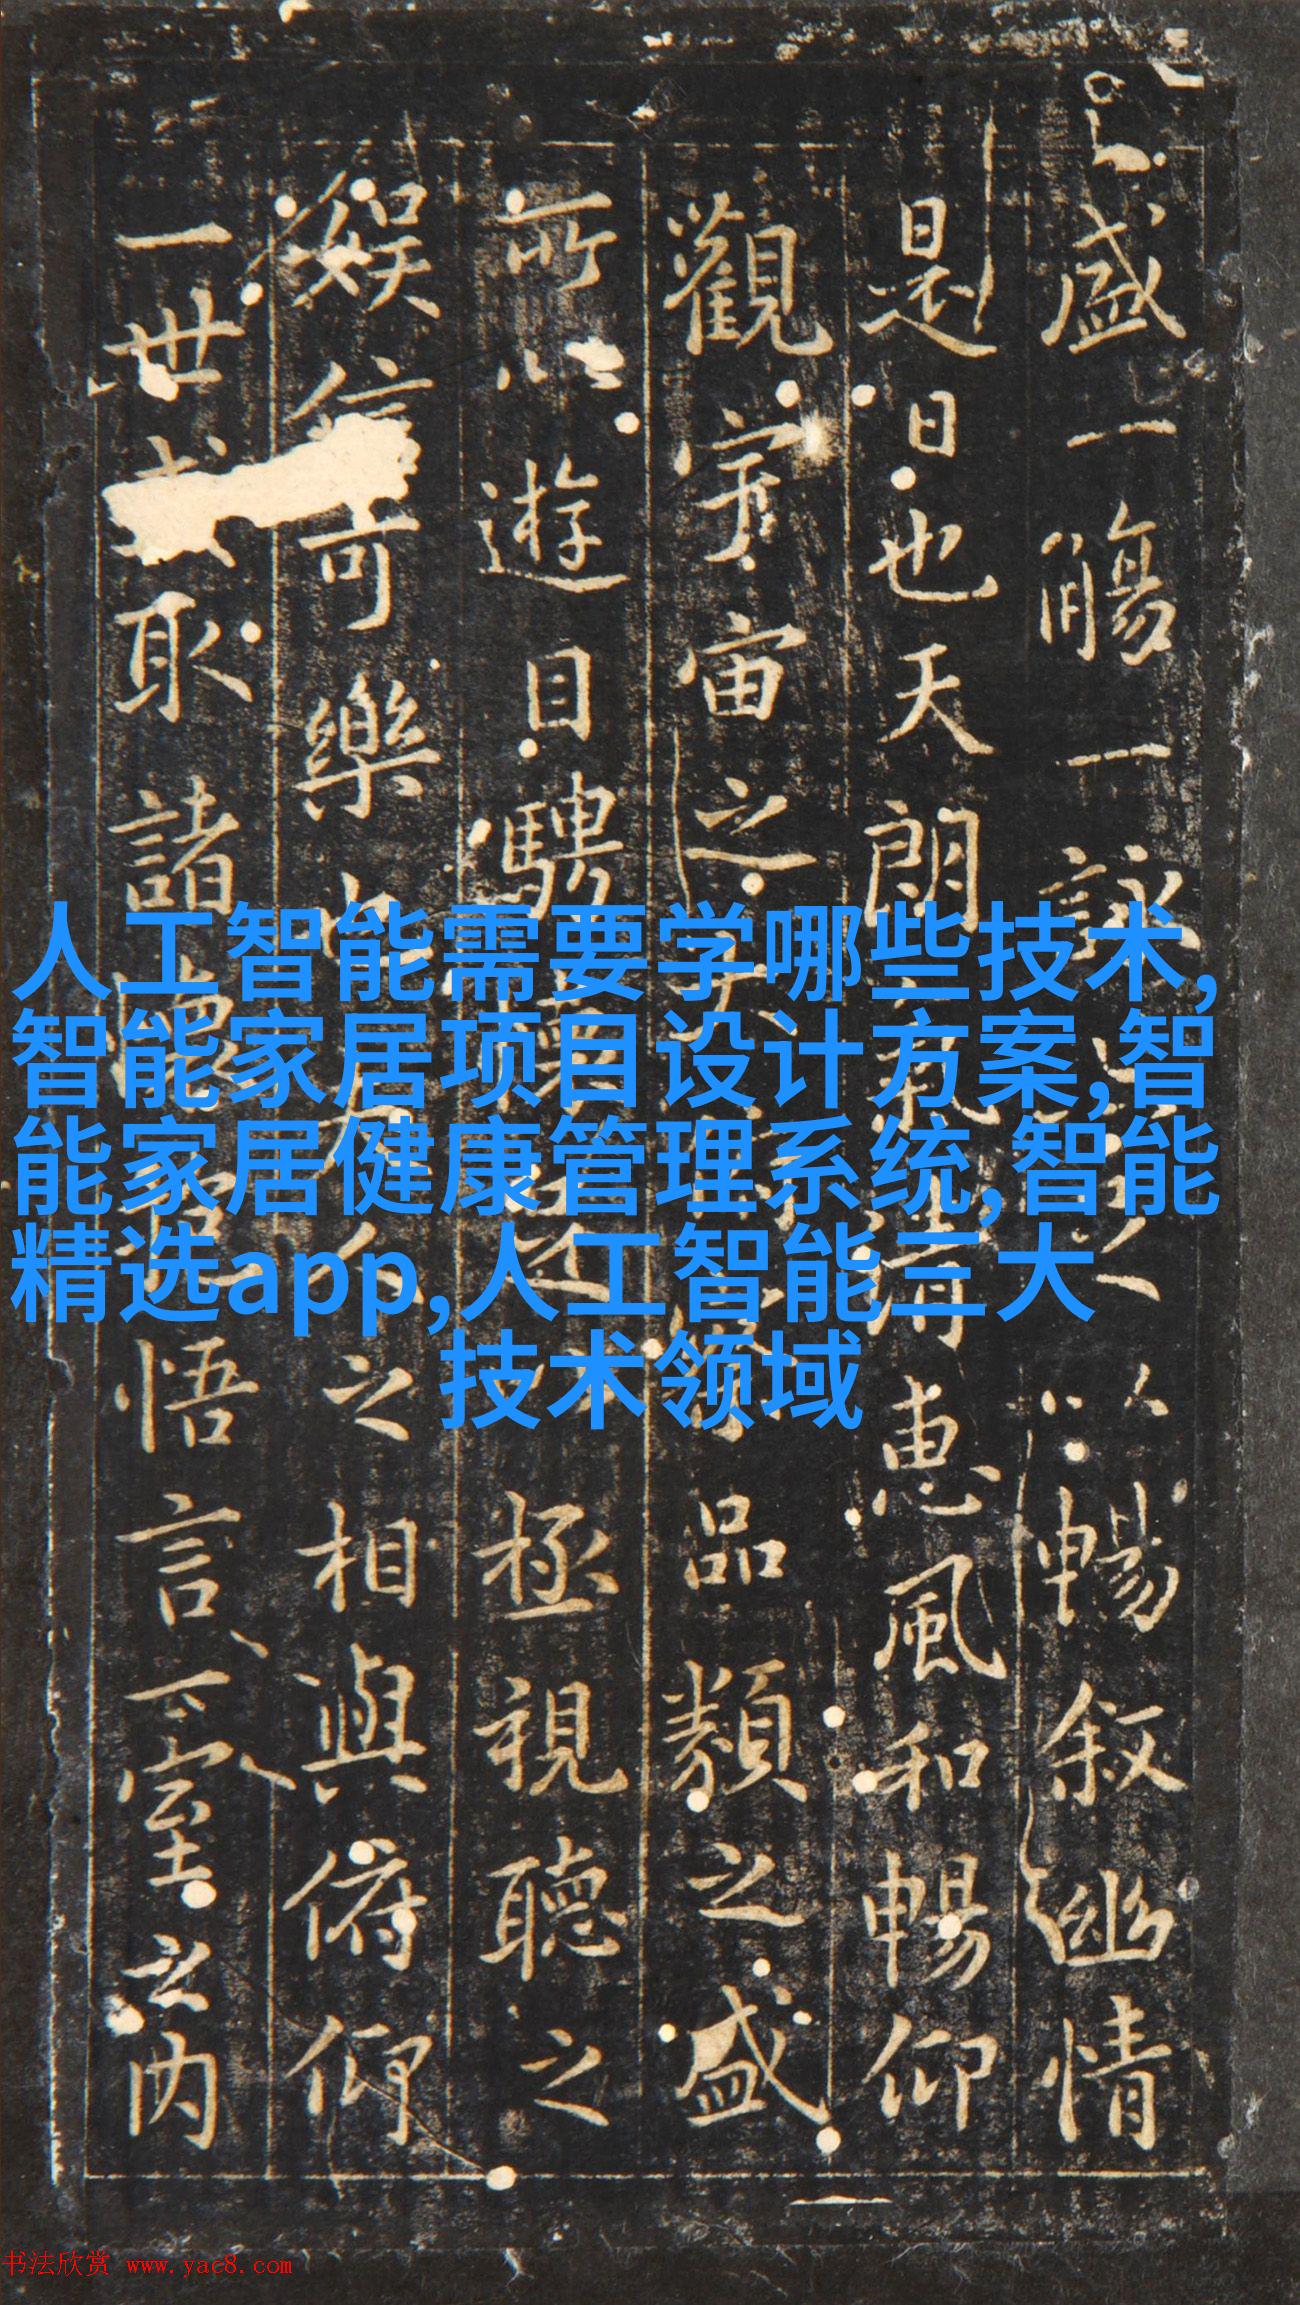 盛一觴一詠以暢叙幽情
是日也天朗氣清惠風和暢仰
觀宇宙之品類之盛
所以遊目騁懷極視聽之
娛信可樂也夫人之相與俯仰
一世或取諸懷悟言一室之内
人工智能需要学哪些技术,
智能家居项目设计方案,智
能家居健康管理系统,智能
精选app,人工智能三大
技术领域
书法欣赏 www.yac8.com